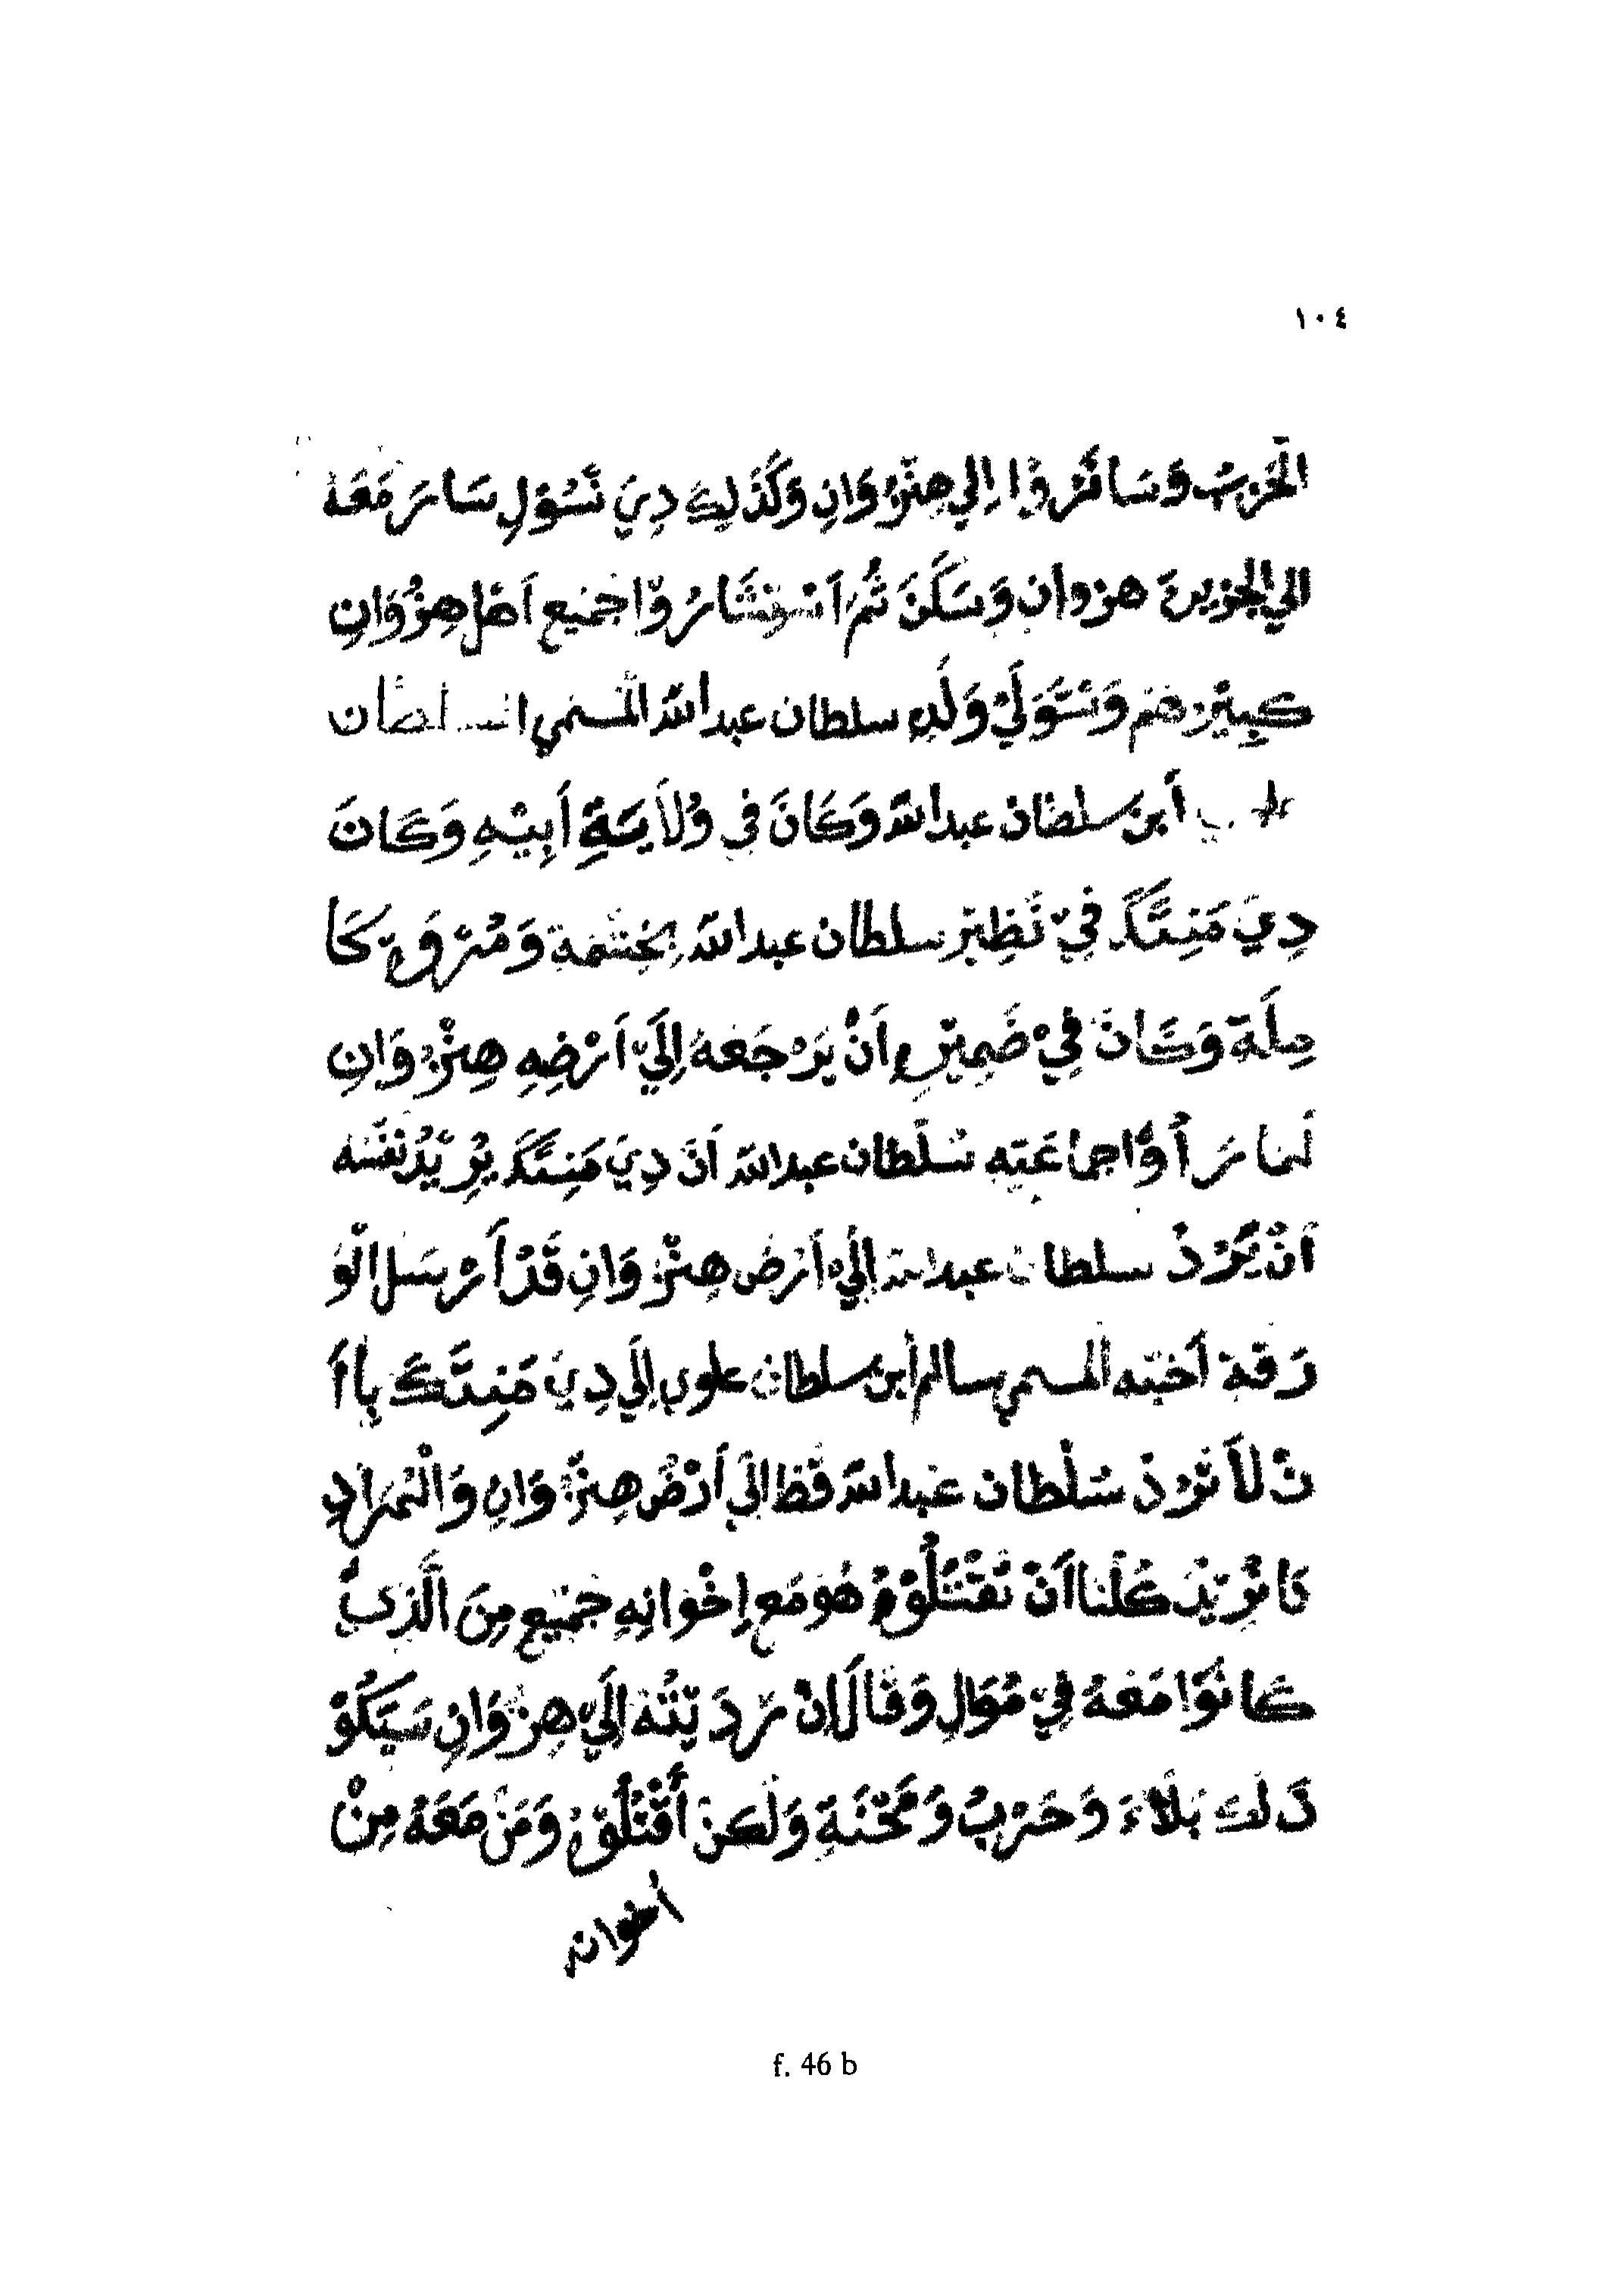 ١٠٤
الْحَرْبُ وَسَافَرُوْا اِلي هِنْزُوَانِ وَكَذَلِكَ دِيَ نَسُوَلِ سَارَ مَعَهُ
الي الجزيرة هنزوان وَسَكَنَ ثُمَّ اَسْتَشَارُوْا جَمِيْع اَهْل هِنْزُوَانِ
كبِيْرهُم وَتَوَلَيْ وَلَدِهِ سلطان عبد الله المسمي السلطان
أبن سلطان عبد الله وَكَانَ فِي وُلاَيَةِ اَبِيْهِ وَكَانَ
دِيَ مَنِنَّكَ فِيْ نَظِيْر سلطان عبد الله بِخِشْمَة وَمُرُوَّة كَا
مِلَة وَكَانَ فِيْ ضَمِيْرِهِ اَنْ يَرْجَعهُ اِلَيْ اَرْضِهِ هِنْزُوَانِ
لَمَا رَأَوْا جماعَتِه سُلْطان عبد الله اَنَّ دِيَ مَنِنَّكَ يُرِيْدُ نَفْسَه
اَنْ يَرُدْ سلطان عبد الله اِلَيْ اَرْض هِنْزُوَانِ قَدْ اَرْسَل الْوَ
رَقة اَخته المسمي سالم أبن سلطان علوي اِلَي دِيَ مَنِنَّكَ بِااَ
نْ لاَ تَرُدْ سُلْطان عَبد الله قَط الَي اَرْض هِنْزُوَانِ وَالْمُرَادِ
نَا نُرِيْد كُلنَا اَنْ تَقْتُلُوْهُ هُوَ مَع اِخْوَانِهِ جَمِيْع مِنَ الَّذِيْ
كَانُوْا مَعَهُ فِيْ مُوَالِ وَقَالَ اِنْ رَدَيْتُهُ اِلَيْ هِنْزُوَانِ سَيَكُوْ
ذَلك بَلَاءَ وَحَرْبُ وَمَحْنَةِ وَلَكِنْ أَقْتُلُوْهُ وَمَنْ مَعَهُ مِنْ
اخوانه
f. 46 b